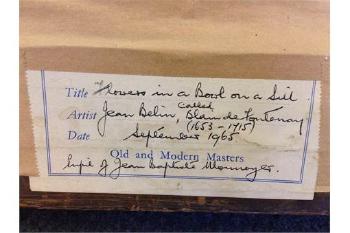 Title Flowers in a Bowl on a Sill
called
Artist Jean Belin, Blain de Fontenay
(1653-1715)
Date September 1965
Old and Modern Masters
Pupil of Jean Baptiste Monnoyer.